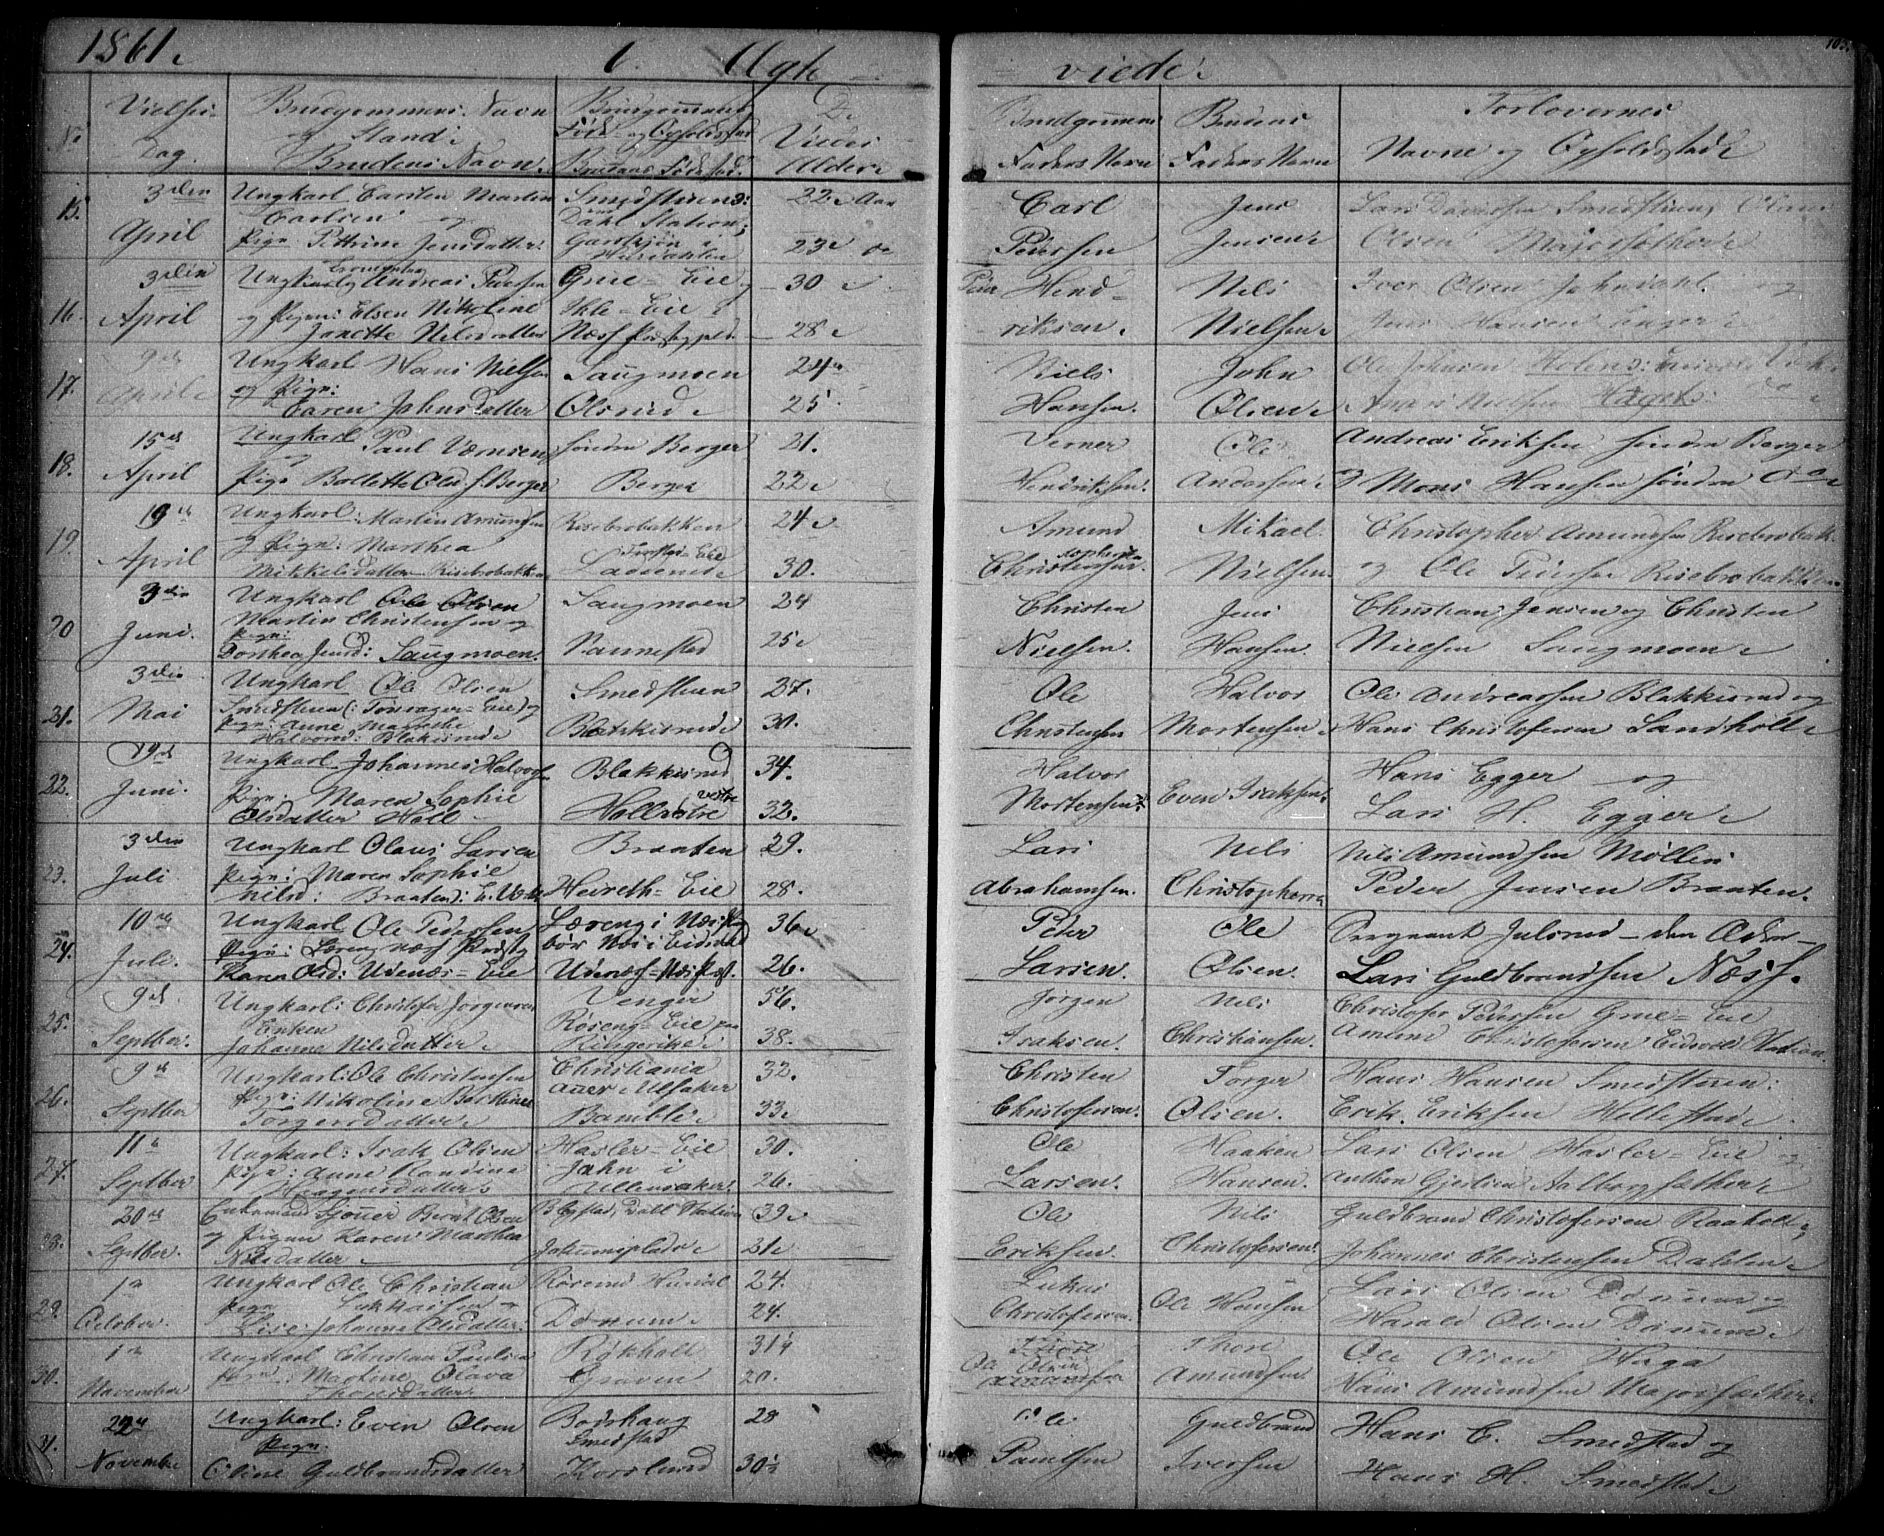 1861.
Ægte viede.
No
Vielses Dag.
Brudgommens Navn og Stand
Brudens Navn.
Brudgommens Føde- og Opholdssted
Brudens Fødested.
De Viedes Alder
Brudgommens Faders Navn
Brudens Faders Navn
Forlovernes Navne og Opholdsted
15. 3die April
Ungkarl Carsten Martin Carlsen og
Pige: Petrine Jensdatter
Smedstuens: Dahl Station,
22 Aar
23
Carl Pedersen
Jens Jensen
Lars Davidsen Smedstuen, Claus
Olsen
16. 3die April
Ungkarl Andreas Pedersen
og Pigen: Elsen Nikoline
Janette Nilsdatter
Grue-Eie
Næss Præstegjeld
30
28
Peder Hendriksen.
Nils Nielsen
Iver Olsen og
Hansen
17. 9de April
Ungkarl Hans Nielsen
og Pige: Caren Johnsdatter
Saugmoen
Olsrud
24
25
Niels Hansen.
John Olsen
Ole Johnsen
Nielsen
18. 15de April
Ungkarl Paul Vernsen,
Pige Bollette Olsd. S. Berger
Søndre Berger
Berger
21.
22
Verner Hendriksen.
Ole Andersen
Andreas Eriksen Søndre Berger
og Mons Hansen Søndre do
19. 19de April
Ungkarl: Martin Amundsen
og Pige: Marthea
Mikkelsdatter Risebrobakken
Risebrobakken
24
30.
Amund Christophersen
Mikael Nielsen
Christopher Amundsen Risebrobak.
og Ole Pedersen Risebrobakken
20 3die Juni.
Ungkarl Ole Olsen
Martin Christensen og
Pige: Dorthea Jensd: Saugmoen.
Saugmoen
Nannestad
24
25
Christen Nielsen.
Jens Hansen.
Christian Jensen og Christen
Nielsen Saugmoen
21. 3die Mai
Ungkarl Ole Olsen
Smedstuen (: Tønsager-Eie) og
Pige: Anne Marthe
Halvorsd: Blakkisrud
Smedstuen
Blakkisrud
27.
30.
Ole Christensen
Halvor Mortensen
Ole Andreassen Blakkisrud og
Hans Christofersen Sandholt
22. 19de Juni.
Ungkarl Johannes Halvorsen
Pige: Maren Sophie
Olsdatter Holl
Blakkisrud
Holl vestre
34.
32.
Halvor Mortensen
Even Isaksen
Hans Egger og
Lars H. Egger
23. 3die Juli
Ungkarl Olaus Larsen
Pige: Maren Sophie
Nilsd: Braaten: E. Verk
Braaten
Heireth-Eie
29.
28.
Lars Abrahamsen.
Nils Christophersen
Nils Amundsen Møllen
Peder Jensen Braaten.
24. 10de Juli.
Ungkarl Ole Pedersen
Pige: Løreng næss Præst.
Karen Olsd: Udenæs-Eie
Løreng i Næs
bor Næs i Eidsvold
Udenæs-Næs Præst.
36
26.
Peder Larsen.
Ole Olsen.
Sergeant Julsrud - den Æder-
Lars Guldbrandsen Næss.
25. 9de Septber.
Ungkarl: Christofer Jørgensen
Enken
Johanne Nilsdatter
Venger
Røseng-Eie paa
Ringerike
56.
38.
Jørgen Isaksen.
Nils Christiansen.
Christofer Pedersen Grue-Eie
Amund Christofersen Eidsvold Station
26. 9de Septber
Ungkarl: Ole Christensen
Pige: Nikoline Bertine
Torgersdatter
Christiania
Auer Ulsaker
Bamble
32.
33
Christen Christofersen.
Torger Olsen.
Hans Hansen Smedstuen:
Erik Eriksen Hellestad
27. 11te Septber
Ungkarl: Isak Olsen
Pige: Anne Randine
Haagensdatter
Hasler-Eie
Jahn i
Ullensaker
30.
26.
Ole Larsen.
Haaken Hansen.
Lars Olsen Hasler-Eie og
Anthon Gjertsen Aalborgsæthre
28. 20de Septber.
Enkemand Bernt Olsen
og Pigen Karen Marthea
Nilsdatter
Bøgstad, Dahl Station
39
21
Ole Eriksen.
Nils Christofersen
Guldbrand Christofersen Raaholt
Johannes Christensen Dahlen
29. 1ste October.
Ungkarl Ole Christian
Pige Lukassen og
Lise Johanne Olsdatter.
Rørsrud Hurdal
Dønnum
24.
24.
Lukas Christofersen.
Ole Hansen
Lars Olsen Dønnum og
Harald Olsen Dønnum
30. 1ste November
Ungkarl Christian Paulsen
Pige: Martine Olava
Thoresdatter
Røkholt
Graven
31¼
20.
Ole Olsen
Thore Amundsen.
Ole Olsen Haga
Hans Amundsen Majorsæther.
31. 22de November
Ungkarl: Even Olsen
Pige: Oline Guldbrandsdatter
Bodshaug
Smedstad
Korslund
28
30½
Ole Paulsen
Guldbrand Iversen
Hans E. Smedstad og
Hans H. Smedstad